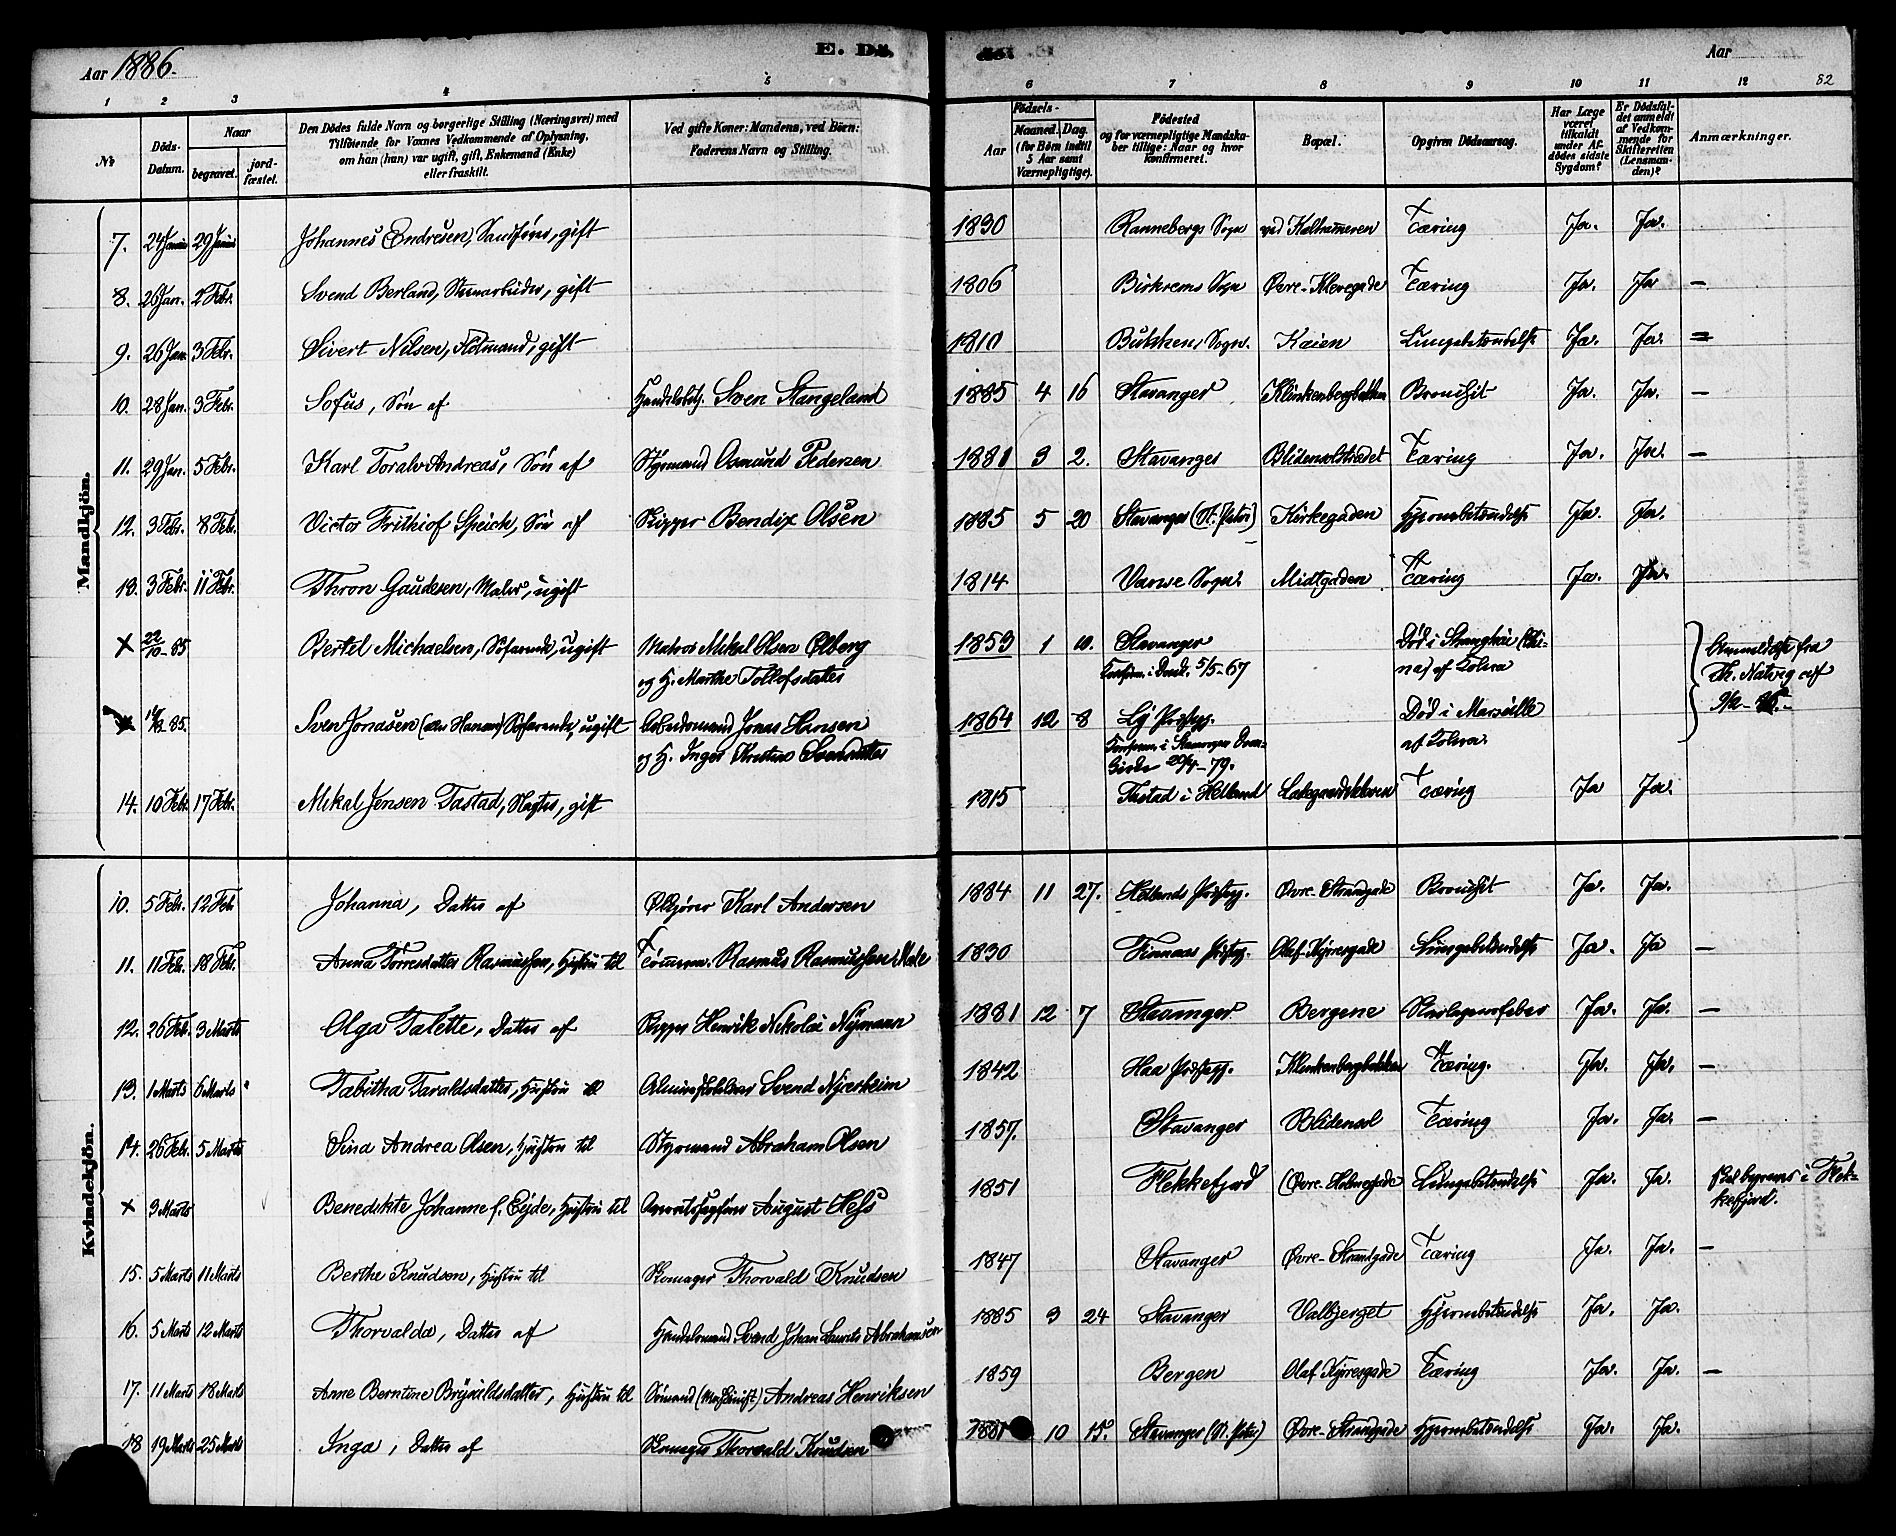 Aar 1886.
E. Dö-
de.
Aar
82
1 2 3 4 5 6 7 8 9 10 11 12
№
Döds-Datum.
Naar
begravet.
jord-fæstet.
Den Dödes fulde Navn og borgerlige Stilling (Næringsvei) med
Tilföiende for Voxnes Vedkommende af Oplysning,
om han (hun) var ugift, gift, Enkemand (Enke)
eller fraskilt.
Ved gifte Koner: Mandens, ved Börn:
Faderens Navn og Stilling.
Födsels-
Aar
Maaned. Dag.
(for Börn indtil
5 Aar samt
Værnepligtige).
Födested
og for værnepligtige Mandska-
ber tillige: Naar og hvor
konfirmeret.
Bopæl.
Opgiven Dödsaarsag.
Har Læge
været
tilkaldt
under Af-
dödes sidste
Sygdom?
Er Dödsfal-
det anmeldt
af Vedkom-
mende for
Skifteretten
(Lensman-
den)?
Anmærkninger.
Mandkjön.
7. 24 Januar 29 Januar Johannes Endresen, gift 1830 Ranneberg Sogn Tæring Ja. Ja.
8. 26 Jan. 2 Febr. Svend Berland, Stenarbeider, gift 1806 Birkrems Sogn Øvre-Klevegade Tæring Ja. Ja —
9. 26 Jan. 3 Febr. Sivert Nilsen, gift 1810 Bukken Sogn. Kaien Lungebetændelse Ja. Ja. =
10. 28 Jan. 3 Febr. Sofus, Søn af Handelsbetj. Sven Stangeland 1885 4 16 Stavanger Klinkenbergbakken Bronchit Ja. Ja. —
11. 29 Jan. 5 Febr. Karl Toralv Andreas, Søn af Styrmand Osmund Pedersen 1881 3 2. Stavanger Blidensolstrædet Tæring Ja. Ja. —
12. 3 Febr. 8 Feb. Victor Frithiof Speich, Søn af Skipper Bendix Olsen 1885 5 20 Stavanger (St. Petri) Kirkegaden Hjernebetændelse Ja. Ja.
13. 3 Febr. 11 Febr. Thron Gaudesen, Maler, ugift 1814 Midtgaden Tæring Ja. Ja.
× 22/10-85 Bertel Michaelsen, Søfarende, ugift Matros Mikal Olsen Ølberg 1853 1 10. Stavanger Død i Shanghai (Chi- Anmeldelse fra
og H. Marthe Tollefsdatter Konfirm. i Domk. 5/5-67 na) af Kolera Th. Natvig af
85. Sven Jonasen (Hansen) Søfarende, ugift Arbeidsmand Jonas Hansen 1864 12 8 Død i Marseille
og H. Inger Kristine Svendsdatter Konfirm. i Stavanger Dom- af Kolera.
kirke 20/4-79.
14. 10 Febr. 17 Febr. Mikal Jensen Tastad, gift 1815 Tastad i Hetland Tæring Ja Ja.
Kvindekjön.
10. 5 Febr. 12 Feb Johanna, Datter af Karl Andersen 1884 11 27. Hetlands Præstegj. Øvre-Strandgade Bronchit Ja. Ja.
11. 11 Feb. 18 Feb. Anna Torresdatter Rasmussen, Hustru til Tømmerm. Rasmus Rasmussen 1830 Finnaas Præstegj. Olaf Kyrresgade Lungebetændelse Ja. Ja —
12. 26 Feb. 3 Marts Olga Talette, Datter af Skipper Henrik Nikolai Nymann 1881 12 7 Stavanger Bergene Skarlagensfeber Ja. Ja. —
13. 1 Marts 6 Marts Tabitha Taraldsdatter, Hustru til Svend Njærheim 1842 Haa Præstegj. Klinkenbergbakken Tæring. Ja. Ja. —
14. 26 Febr. 5 Marts Sina Andrea Olsen, Hustru til Styrmand Abraham Olsen 1857. Stavanger Blidensol Tæring Ja. Ja. —
× 3 Marts Benedikte Johanne f. Eide, Hustru til Overretssagfører August Hess 1851 Flekkefjord Øvre-Holmegade Lungebetændelse Ja. Ja. Skal begraves i Flek-
kefjord.
15. 5 Marts 11 Marts Berthe Knudsen, Hustru til Skomager Thorvald Knudsen 1847 Stavanger Øvre-Strandgade Tæring Ja. Ja. —
16. 5 Marts 12 Marts Thorvalda, Datter af Handelsmand Svend Johan Laurits Abrahamsen 1885 3 24 Stavanger Valbjerget Hjernebetændelse Ja. Ja.
17. 11 Marts 18 Marts Anne Berntine Brynildsdatter, Hustru til Sømand (Maskinist) Andreas Henriksen 1859 Bergen Olaf Kyrresgade Tæring Ja. Ja. —
18 19 Marts 25 Marts Inga, Datter af Skomager Thorvald Knudsen 1881 10 15. Stavanger (St. Petri) Øvre-Strandgade Hjernebetændelse Ja. Ja.